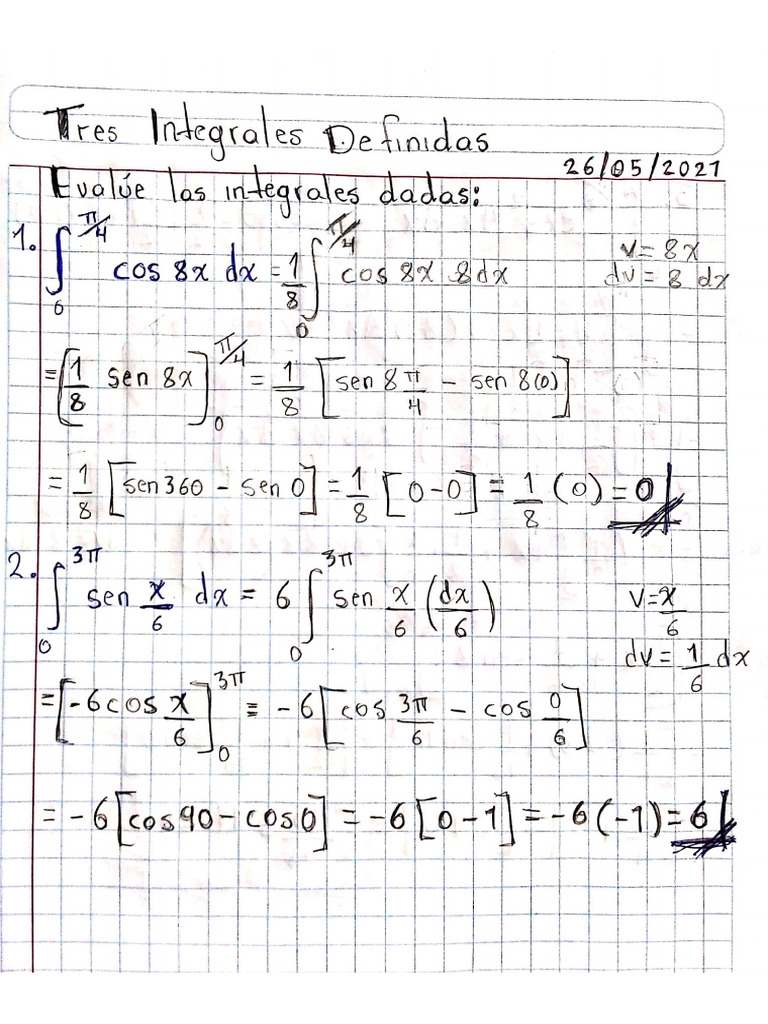 Tres Integrales Definidas
26/05/2021
Evalúe las integrales dadas:
1. ∫₀^{π/4} cos 8x dx = 1/8 ∫₀^{π/4} cos 8x 8dx
v = 8x
dv = 8 dx
= [1/8 sen 8x]₀^{π/4} = 1/8 [sen 8 π/4 - sen 8(0)]
= 1/8 [sen 360 - sen 0] = 1/8 [0-0] = 1/8 (0) = 0
2. ∫₀^{3π} sen x/6 dx = 6 ∫₀^{3π} sen x/6 (dx/6)
v = x/6
dv = 1/6 dx
= [-6 cos x/6]₀^{3π} = -6 [cos 3π/6 - cos 0/6]
= -6 [cos 90 - cos 0] = -6 [0 - 1] = -6 (-1) = 6